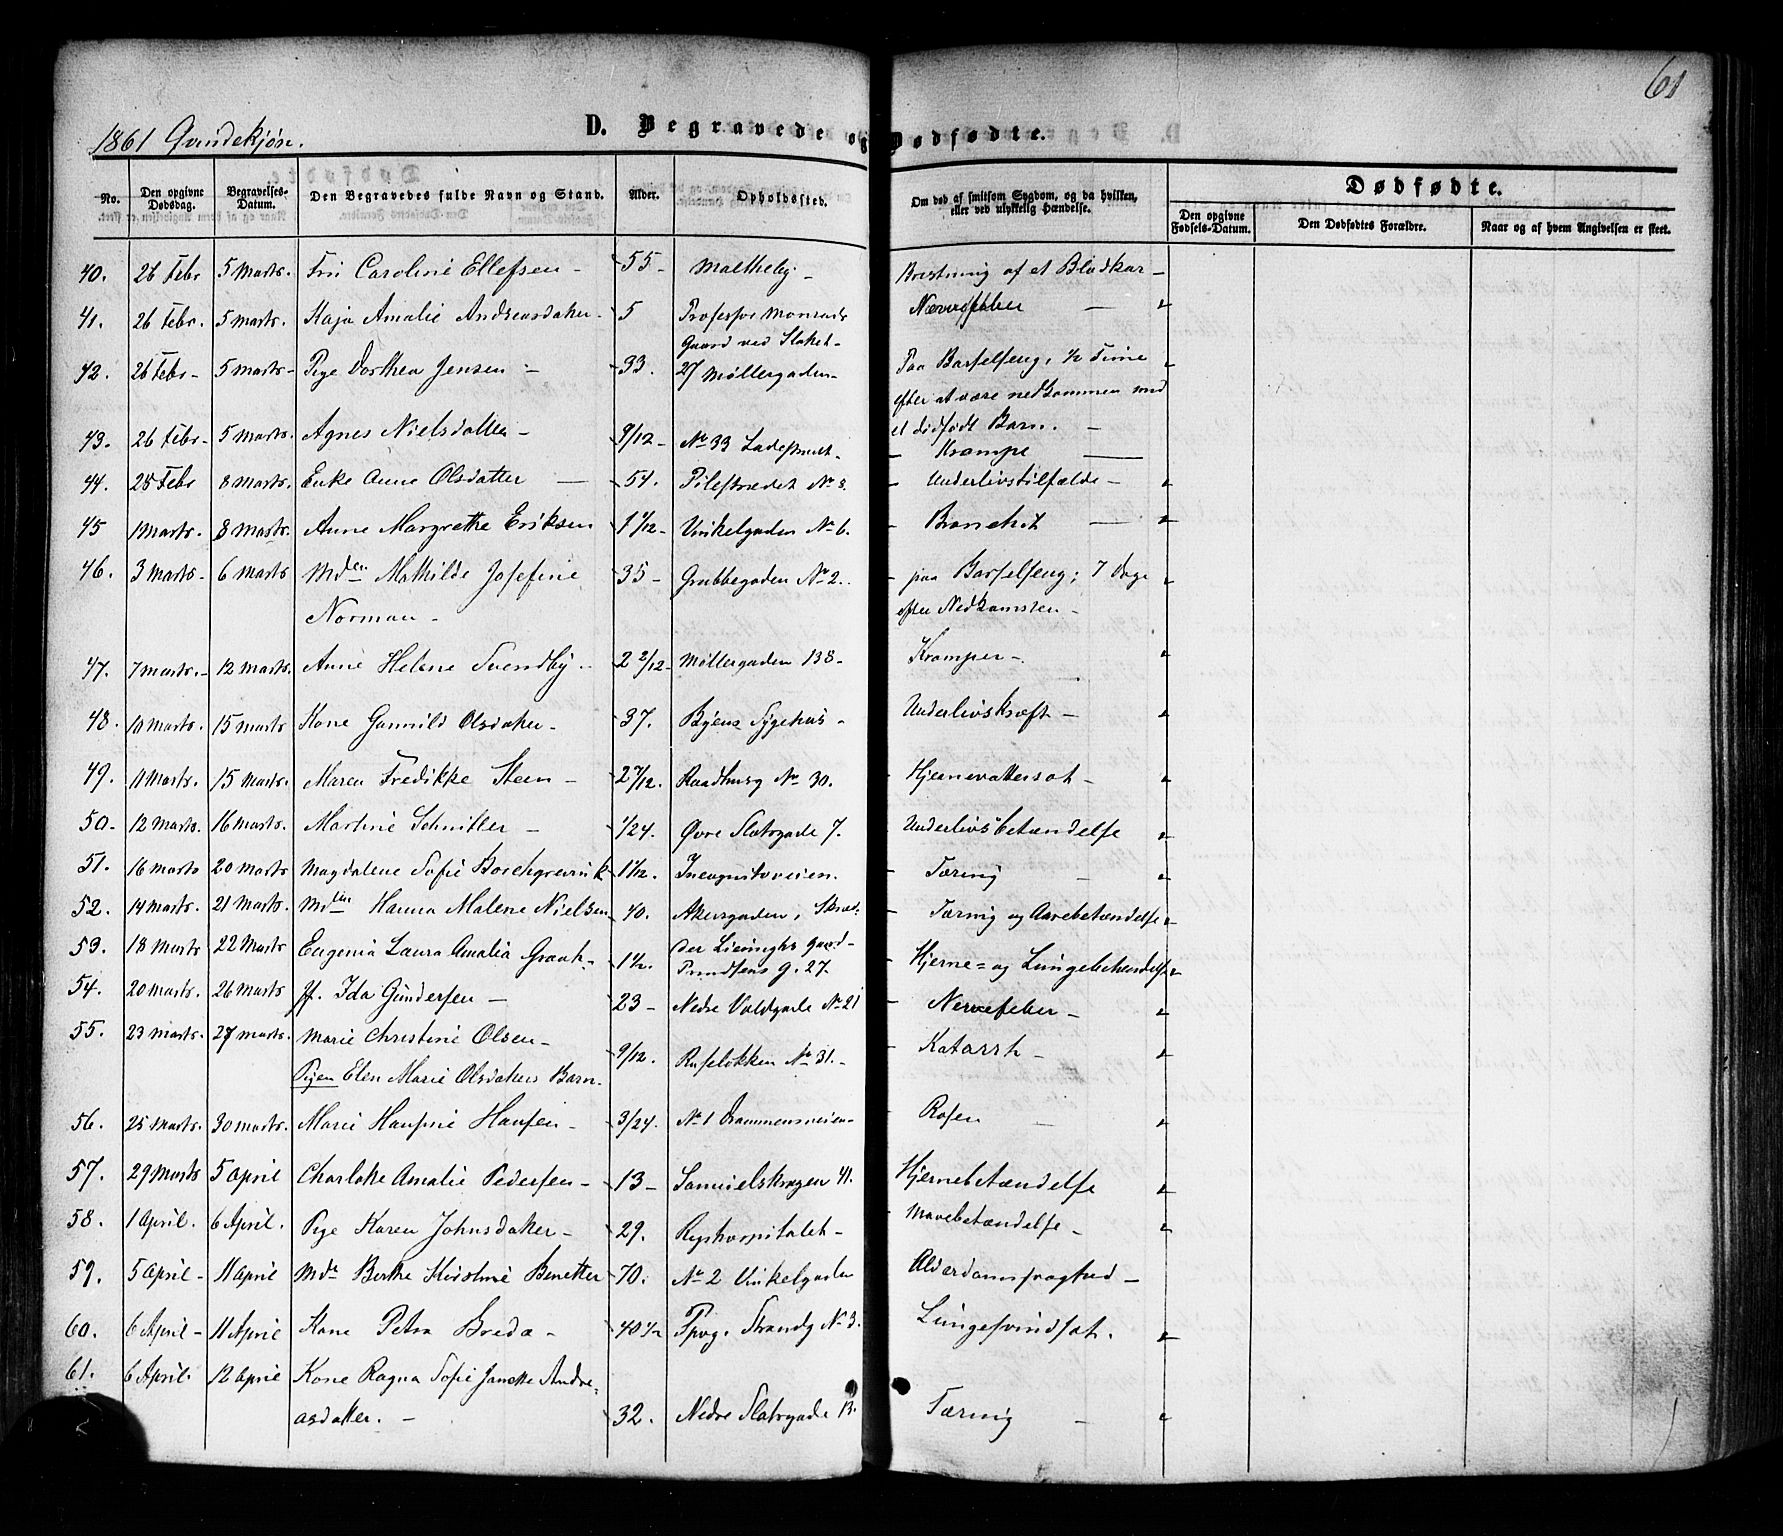 61
1861 Qvindekjøn.
D. Begravede og Dødfødte.
No. Den opgivne Dødsdag. Begravelses-Datum. Den Begravedes fulde Navn og Stand. Alder. Opholdssted. Om død af smitsom Sygdom, og da hvilken, eller ved ulykkelig Hændelse. Dødfødte.
Den opgivne Fødsels-Datum. Den Dødfødtes Forældre. Naar og af hvem Angivelsen er skeet.
40. 26 Febr 5 Marts. Fru Caroline Ellefsen - 55 - Maltheby - Bristning af et Blodkar -
41. 26 Febr. 5 Marts. Kaja Amalie Andreasdatter - 5 Professor Monrads Nervefeber -
Gaard ved Slottet -
42. 26 Febr - 5 Marts - Pige Dorthea Jensen - 33. 27 Møllergaden - Paa Barselseng, 1/2 Time
efter at være nedkommen med
et dødfødt Barn. -
43. 26 Febr - 5 Marts. Agnes Nielsdatter - 9/12 - No 33 - Krampe -
44. 28 Febr 8 Marts. Enke Anne Olsdatter - 54. Pilestrædet No 8. - Underlivstilfælde -
45 1 Marts. 8 Marts. Anne Margrethe Eriksen 1 1/12 - Vinkelgaden No 6. - Bronchit -
46. 3 Marts - 6 Marts Mdm Mathilde Josefine 35 - Grubbegaden No 2. - paa Barselseng; 7 Dage
Norman - efter Nedkomsten -
47. 7 Marts - 12 Marts. Anne Helene Svendby - 2 2/12 - Møllergaden 138 - Kramper -
48. 10 Marts. 15 Marts Kone Gunnild Olsdatter - 37. Byens Sygehus - Underlivskræft -
49. 11 Marts. 15 Marts. Maren Fredikke Steen - 2 7/12. Raadhusg No 30. - Hjernevattersot -
50 - 12 Marts. 16 Marts. Martine Schnitler - 1/24. Øvre Slotsgade 7. - Underlivsbetændelse
51. 16 Marts 20 Marts Magdalene Sofie Borchgrevink 1 1/12. Incognitoveien. - Tæring -
52. 14 Marts. 21 Marts. Mdm Hanna Malene Nielsen 40. Akersgaden, Skræd- - Tæring og Aarebetændelse
der gaard -
53. 18 Marts 22 Marts Eugenia Laura Amalia Graah - 1 1/2. Prindsens g. 27. - Hjerne- og Lungebetændelse
54. 20 Marts. 26 Marts Jf. Ida Gundersen - 23 - Nedre Voldgade No 21 - Nervefeber -
55. 23 Marts. 27 Marts. Marie Christine Olsen - 9/12. Ruseløkken No 31. - Katarrh -
Pigen Elen Marie Olsdatters Barn.
56. 25 Marts. 30 Marts. Marie Hansine Hansen - 3/24. No 1 Drammensveien - Rosen -
57. 29 Marts 5 April Charlotte Amalie Pedersen - 13 - Samuelskrogen 41. Hjernebetændelse
58. 1 April. 6 April. Pige Karen Johnsdatter - 29. Rigshospitalet - Mavebetændelse -
59. 5 April - 11 April Mdm Berthe Kirstine Benetter 70. No 2 Vinkelgaden Alderdomssvaghed -
60. 6 April - 11 April Kone Petra Breda - 40 1/2 Strandg No 3. Lungesvindsot.
61. 6 April. 12 April Kone Ragna Sofie Janette Andre-
asdatter. - 32. Nedre Slotsgade 13. Tæring -